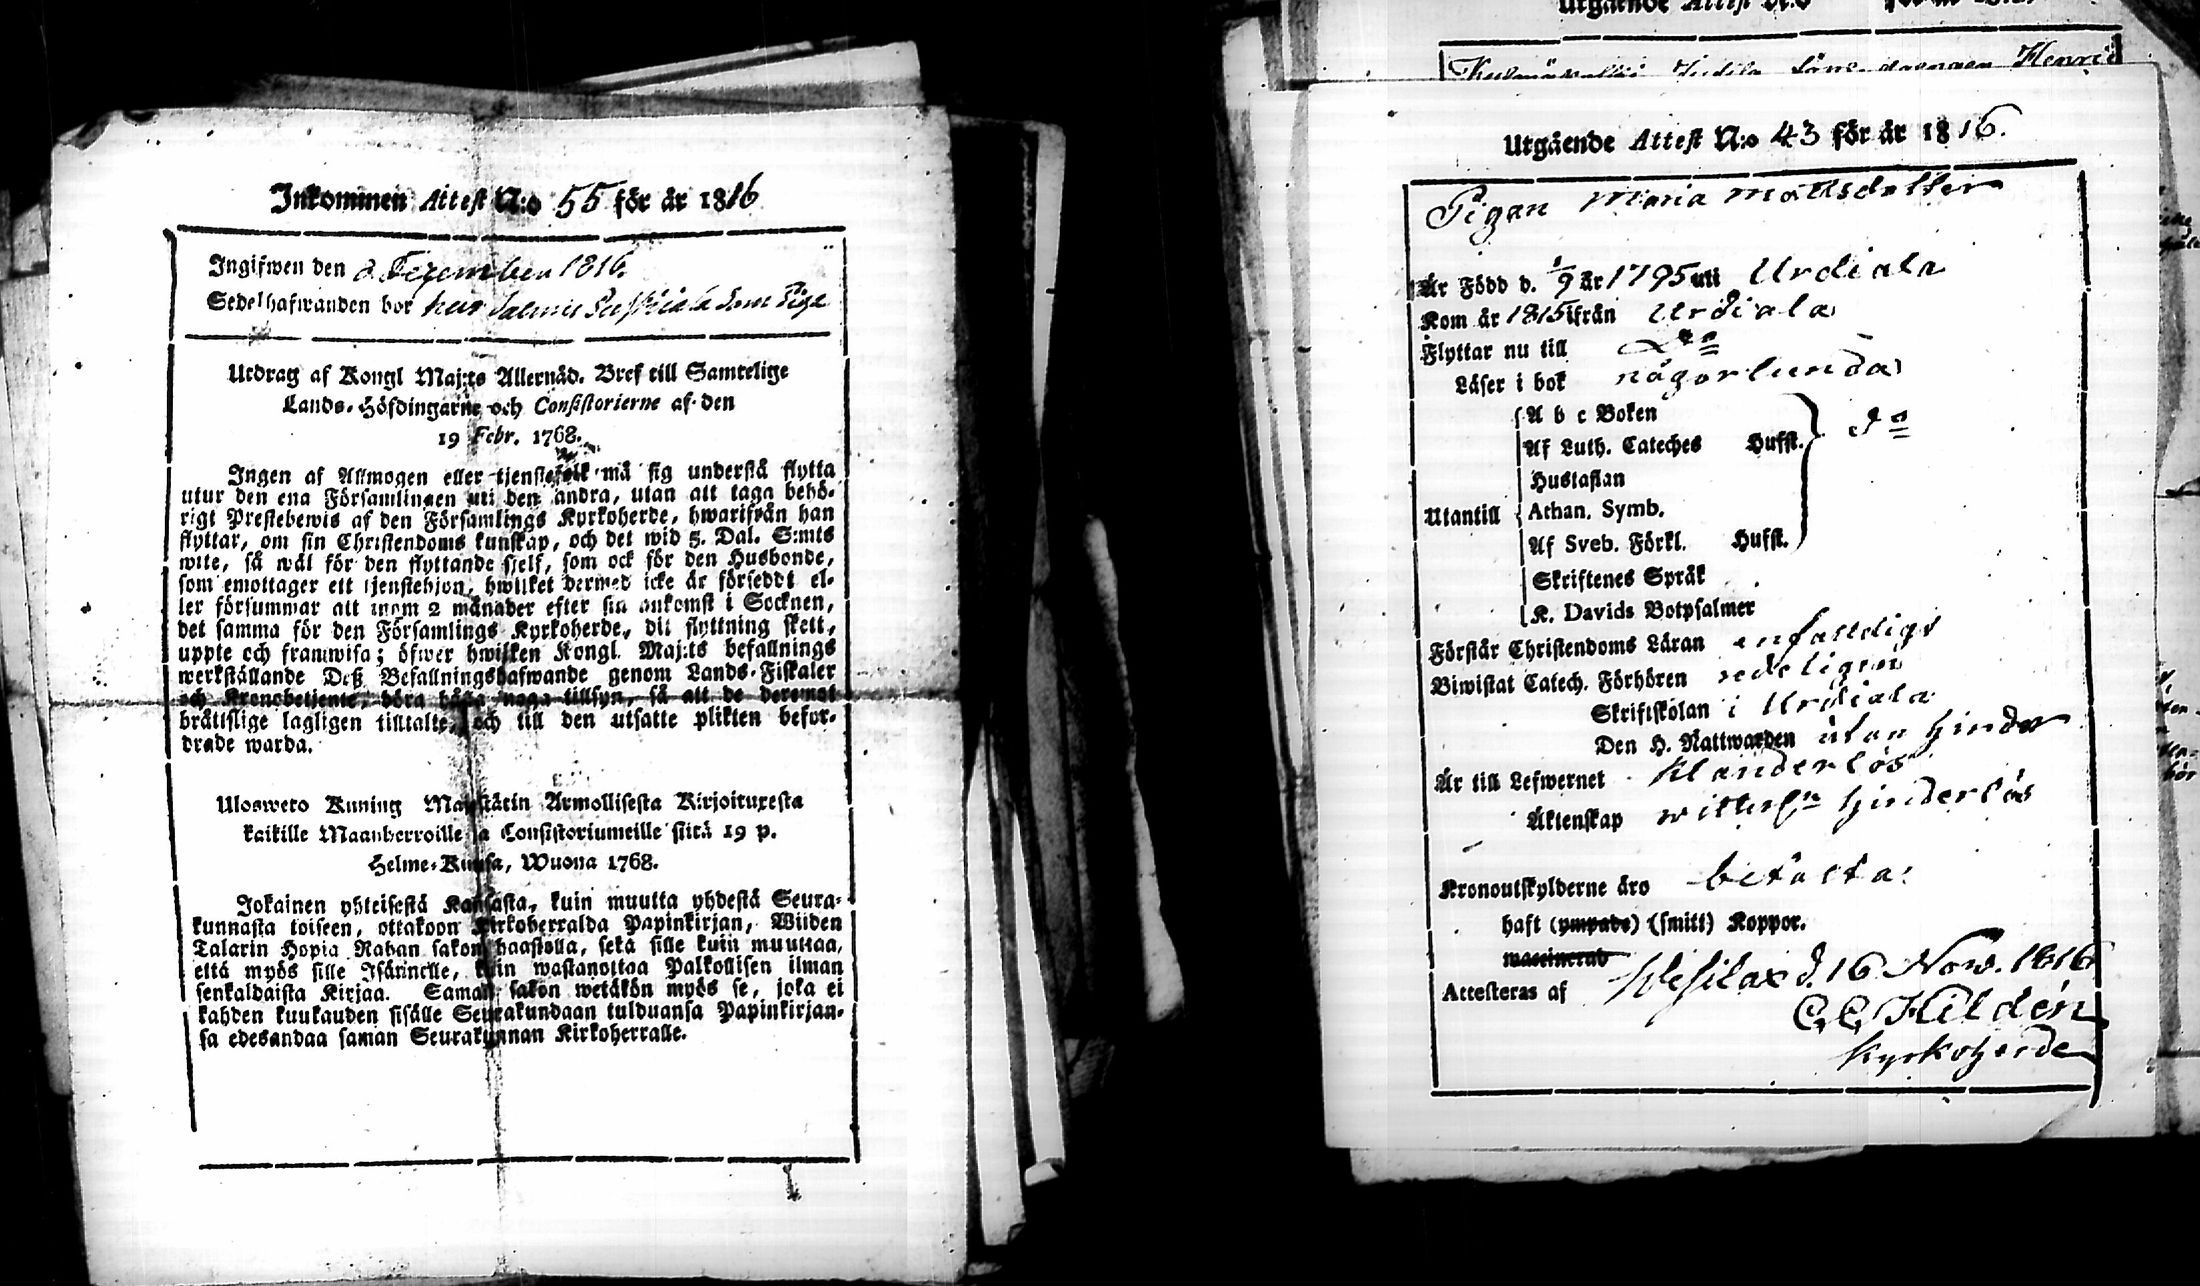 Inkommen Attest N:o 55 för år 1816
Ingifwen den 2 Dezember 1816.
Sedelhafwanden bor hos som Piga
Utdrag af Kongl Maj:ts Allernåd. Bref till Samtelige
Lands-Höfdingarne och Consistorierne af den
19 Febr. 1768.
Ingen af Allmogen eller tjenstefolk må sig understå flytta
utur den ena Församlingen uti den andra, utan att taga behö-
rigt Prestebewis af den Församlings Kyrkoherde, hwarifrån han
flyttar, om sin Christendoms kunskap, och det wid 5. Dal. S:mts
wite, så wäl för den flyttande sjelf, som ock för den Husbonde,
som emottager ett tjenstehjon, hwilket dermed icke är förseddt el-
ler försummar att inom 2 månader efter sin ankomst i Socknen,
det samma för den Församlings Kyrkoherde, dit flyttning skett,
uppte och framwisa; öfwer hwilken Kongl. Maj:ts befallnings
werkställande Deß Befallningshafwande genom Lands-Fiskaler
och Kronobetjente, böra hafwa noga tillsyn, så att de deremot
bråttslige lagligen tilltalte, och till den utsatte plikten befor-
drade warda.
Ulosweto Kuning Majestätin Armollisesta Kirjoituxesta
kaikille Maanherroille ja Consistoriumeille siitä 19 p.
Helme-Kuusa, Wuona 1768.
Jokainen yhteisestä Kansasta, kuin muutta yhdestä Seura-
kunnasta toiseen, ottakoon Kirkoherralda Papinkirjan, Wiiden
Talarin Hopia Rahan sakon haastolla, sekä sille kuin muuttaa,
että myös sille Isännelle, kuin wastanottaa Palkollisen ilman
senkaldaista Kirjaa. Saman sakon wetäkön myös se, joka ei
kahden kuukauden sisälle Seurakundaan tulduansa Papinkirjan-
sa edesandaa saman Seurakunnan Kirkoherralle.
Utgående Attest N:o för år
Henric
Utgående Attest N:o 43 för år 1816.
Pigan Maria Mattsdotter
Är Född d. 1/9 år 1795 uti Urdiala
Kom år 1815 ifrån Urdiala
Flyttar nu till Do
Läser i bok någorlunda
A b c Boken
Af Luth. Cateches Hufst. do
Hustaflan
Utantill Athan. Symb.
Af Sveb. Förkl. Hufst.
Skriftenes Språk
K. Davids Botpsalmer
Förstår Christendoms Läran enfaldigt
Biwistat Catech. Förhören redeligen
Skriftskolan i Urdiala
Den H. Nattwarden utan hinder
Är till Lefwernet Klanderlös
Äktenskap witterl:n hinderlös
Kronoutskylderne äro betalta.
haft (ympade) (smitt) Koppor.
waccinerad
Attesteras af Wesilax d. 16 Nov. 1816
C. C. Hildén
Kyrkoherde